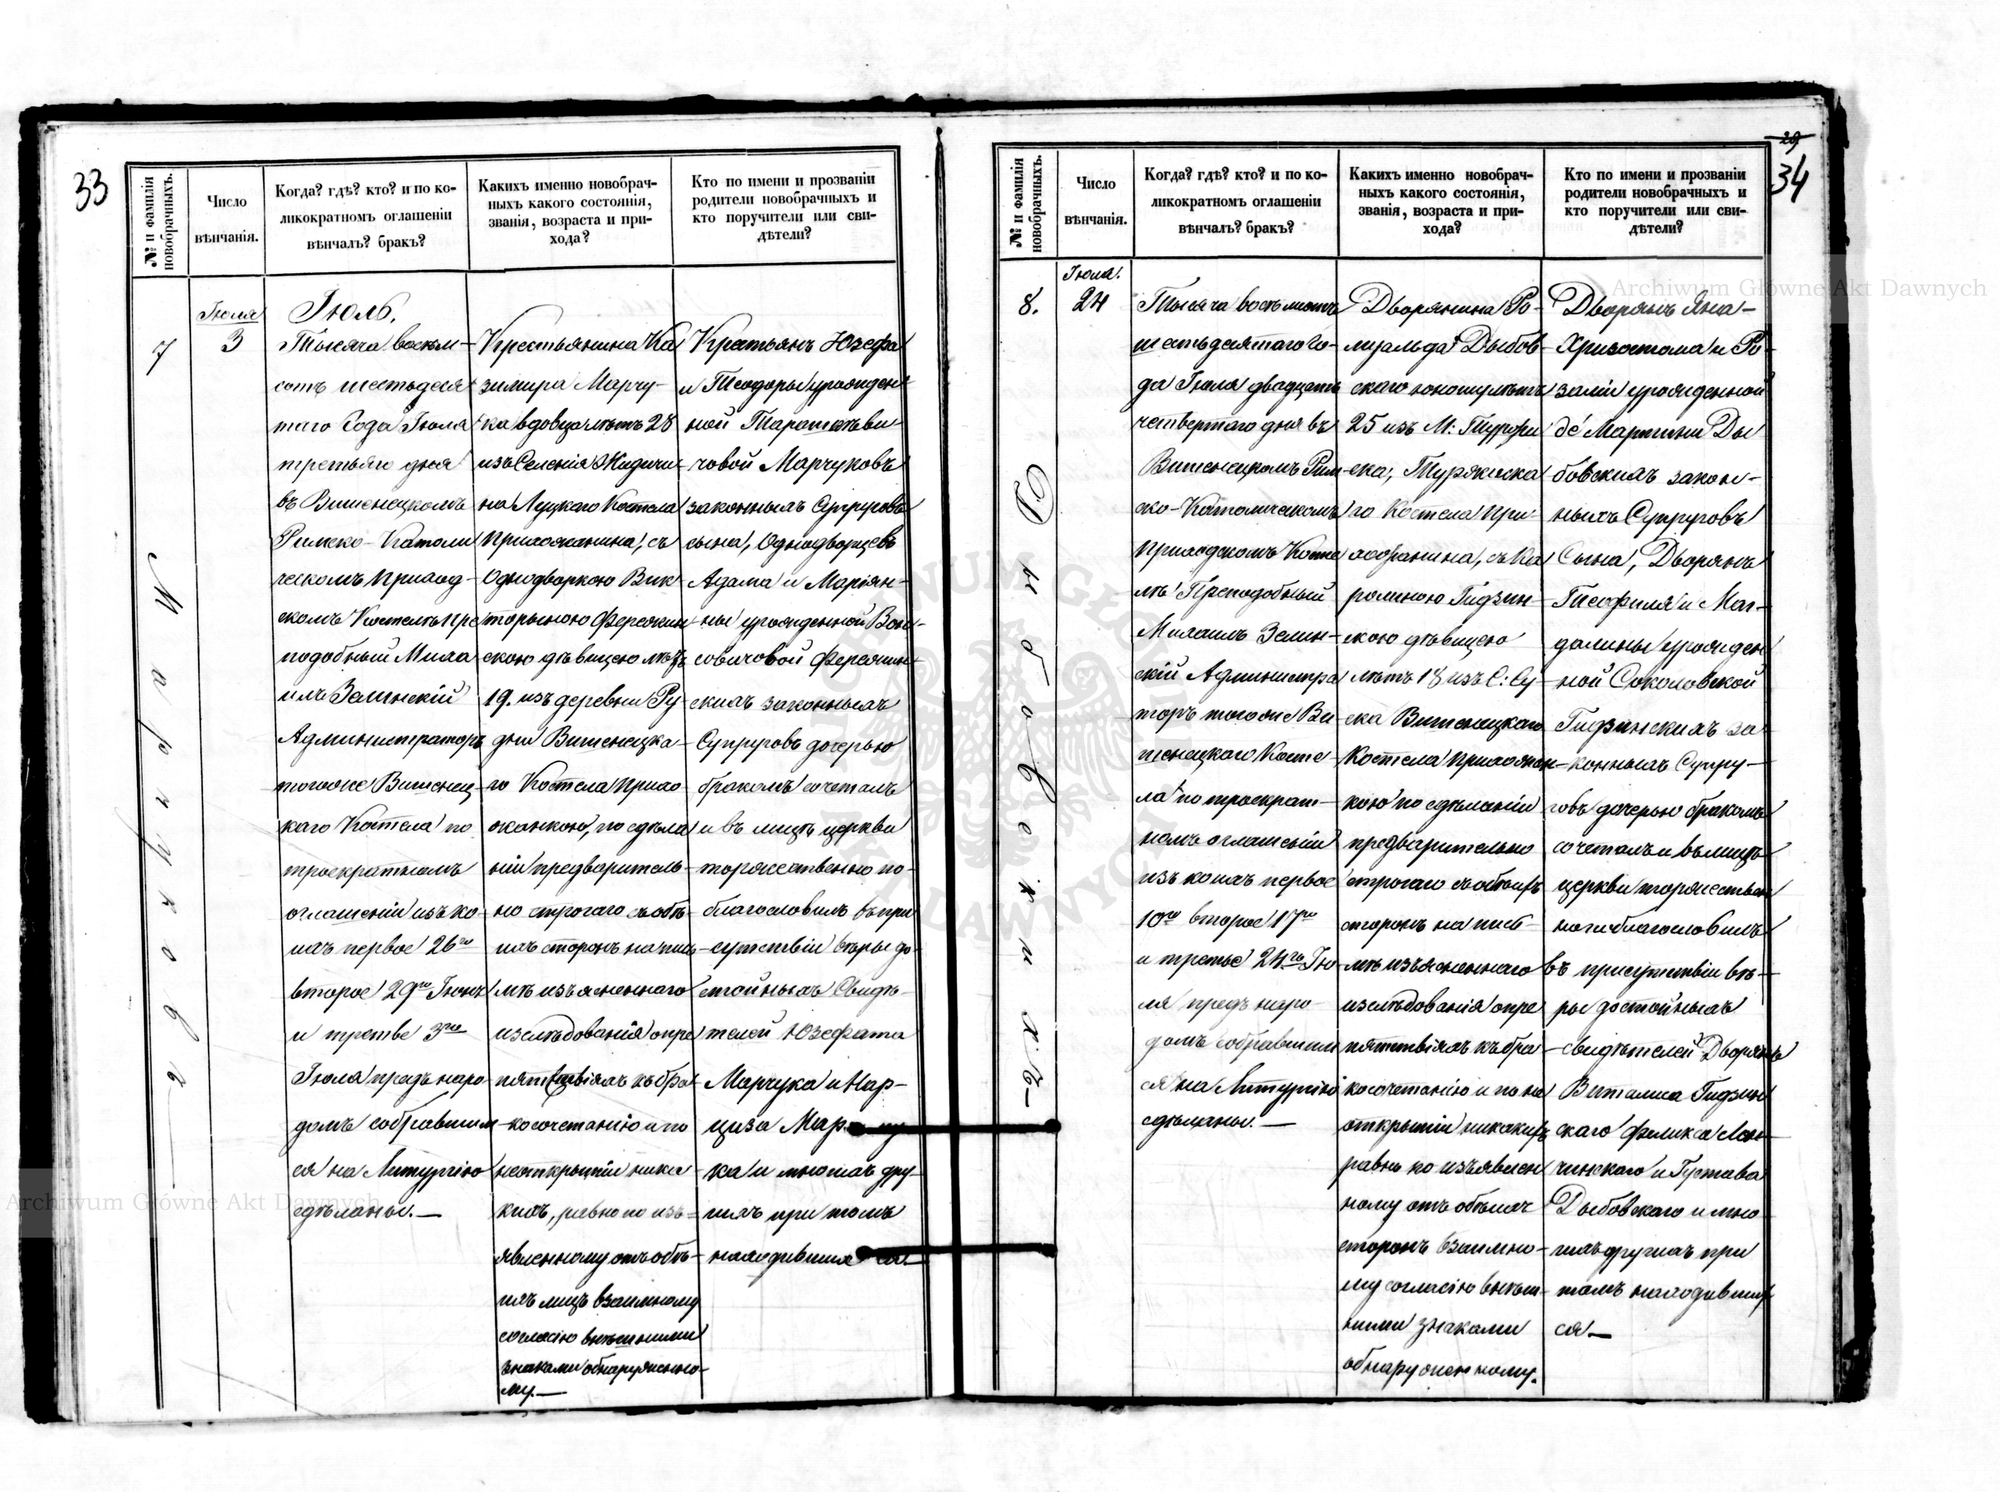 33
№ и фамилія новобрачныхъ.
Число вѣнчанія.
Когда? гдѣ? кто? и по ко-
ликократномъ оглашеніи
вѣнчалъ? бракъ?
Какихъ именно новобрач-
ныхъ какого состоянія,
званія, возраста и при-
хода?
Кто по имени и прозваніи
родители новобрачныхъ и
кто поручители или сви-
дѣтели?
7
Марчуковъ
Іюля
3
Іюль.
Тысяча восем-
сотъ шестьдеся
таго Года Іюля
третьяго дня
въ Вишенецкомъ
Римско-Католи
ческомъ приход
скомъ Костелѣ Пре
подобный Миха
илъ Зелинскій
Администраторъ
тогоже Вишенец-
каго Костела по
троекратномъ
оглашеніи изъ ко-
ихъ первое 26го
второе 29го Іюня
и третье 3го
Іюля предъ наро-
домъ собравшим
ся на Литургію
сдѣланы.—
Крестьянина Ка
зимира Марчу-
ка вдовца лѣтъ 28
изъ Селенія Жидичи-
на Луцкаго Костела
прихожанина, съ
Однодворкою Вик-
торыною Ференжин
скою дѣвицею лѣтъ
19. изъ деревни Ру-
дни Вишенецка-
го Костела прихо
жанкою, по сдѣла
ніи предваритель-
но строгаго съ обѣ-
ихъ сторонъ на пись-
мѣ изъясненнаго
изслѣдованія о пре
пятствіяхъ къ бра-
косочетанію и по
неоткрытіи ника
кихъ, равно по изъ-
явленному отъ обѣ-
ихъ лицъ взаимному
согласію внѣшними
знаками обнаруженно-
му.—
Крестьянъ Юзефа
и Теодоры урожден-
ной
човой Марчуковъ
законныхъ Супруговъ
сына, Однодворцевъ
Адама и Маріян-
ны урожденной
совичовой
скихъ законныхъ
Супруговъ дочерью
бракомъ сочеталъ
и въ лицѣ церкви
торжественно по-
благословилъ въ при
сутствіи вѣры до-
стойныхъ Свидѣ-
телей Юзефата
Марчука и Нар-
циза Марчу
ка и многихъ дру-
гихъ при томъ
находившихся.—
29
34
№ и фамилія новобрачныхъ.
Число вѣнчанія.
Когда? гдѣ? кто? и по ко-
ликократномъ оглашеніи
вѣнчалъ? бракъ?
Какихъ именно новобрач-
ныхъ какого состоянія,
званія, возраста и при-
хода?
Кто по имени и прозваніи
родители новобрачныхъ и
кто поручители или сви-
дѣтели?
8.
Дыбовскихъ—
Іюля.
24
Тысяча восемьсотъ
шестьдесятаго Го-
да Іюля двадцать
четвертаго дня въ
Вишенецкомъ Рим
ско-Католическомъ
приходскомъ Косте
лѣ Преподобный
Михаилъ Зелин-
скій Администра
торъ тогоже Ви-
шенецкаго Косте-
ла по троекрат-
номъ оглашеніи
изъ коихъ первое
10го второе 17го
и третье 24го Ію-
ля предъ наро-
домъ собравшим
ся на Литургію
сдѣланы.—
Дворянина Ро-
муальда Дыбов-
скаго юношу лѣтъ
25 изъ М: Турори
ска, Турйиска
го Костела при-
хожанина, съ Ка
ролиною Гидзин-
скою дѣвицею
лѣтъ 18 изъ С:
Вишенецкаго
Костела прихожан-
кою по сдѣланіи
предварительно
строгаго съ обѣихъ
сторонъ на пись-
мѣ изъясненнаго
изслѣдованія о пре
пятствіяхъ къ бра-
косочетанію и по не
открытіи никакихъ
равно по изъявлен
ному отъ обѣихъ
сторонъ взаимно-
му согласію внѣш-
ними знаками
обнаруженному.
Дворянъ Яна-
Хризостома и Ро-
заліи урожденной
де Мартини Ды
бовскихъ закон-
ныхъ Супруговъ
Сына, Дворянъ
Теофиля и Маг-
далины урожден
ной Соколовской
Гидзинскихъ за-
конныхъ Супру-
говъ дочерью бракомъ
сочеталъ и въ лицѣ
церкви торжествен
но поблагословилъ
въ присутствіи вѣ-
ры достойныхъ
свидѣтелей Дворянъ
Виталиса Гидзин
скаго Феликса
чинскаго и Густава
Дыбовскаго и мно
гихъ другихъ при
томъ находивших
ся—
Archiwum Główne Akt Dawnych
Archiwum Główne Akt Dawnych